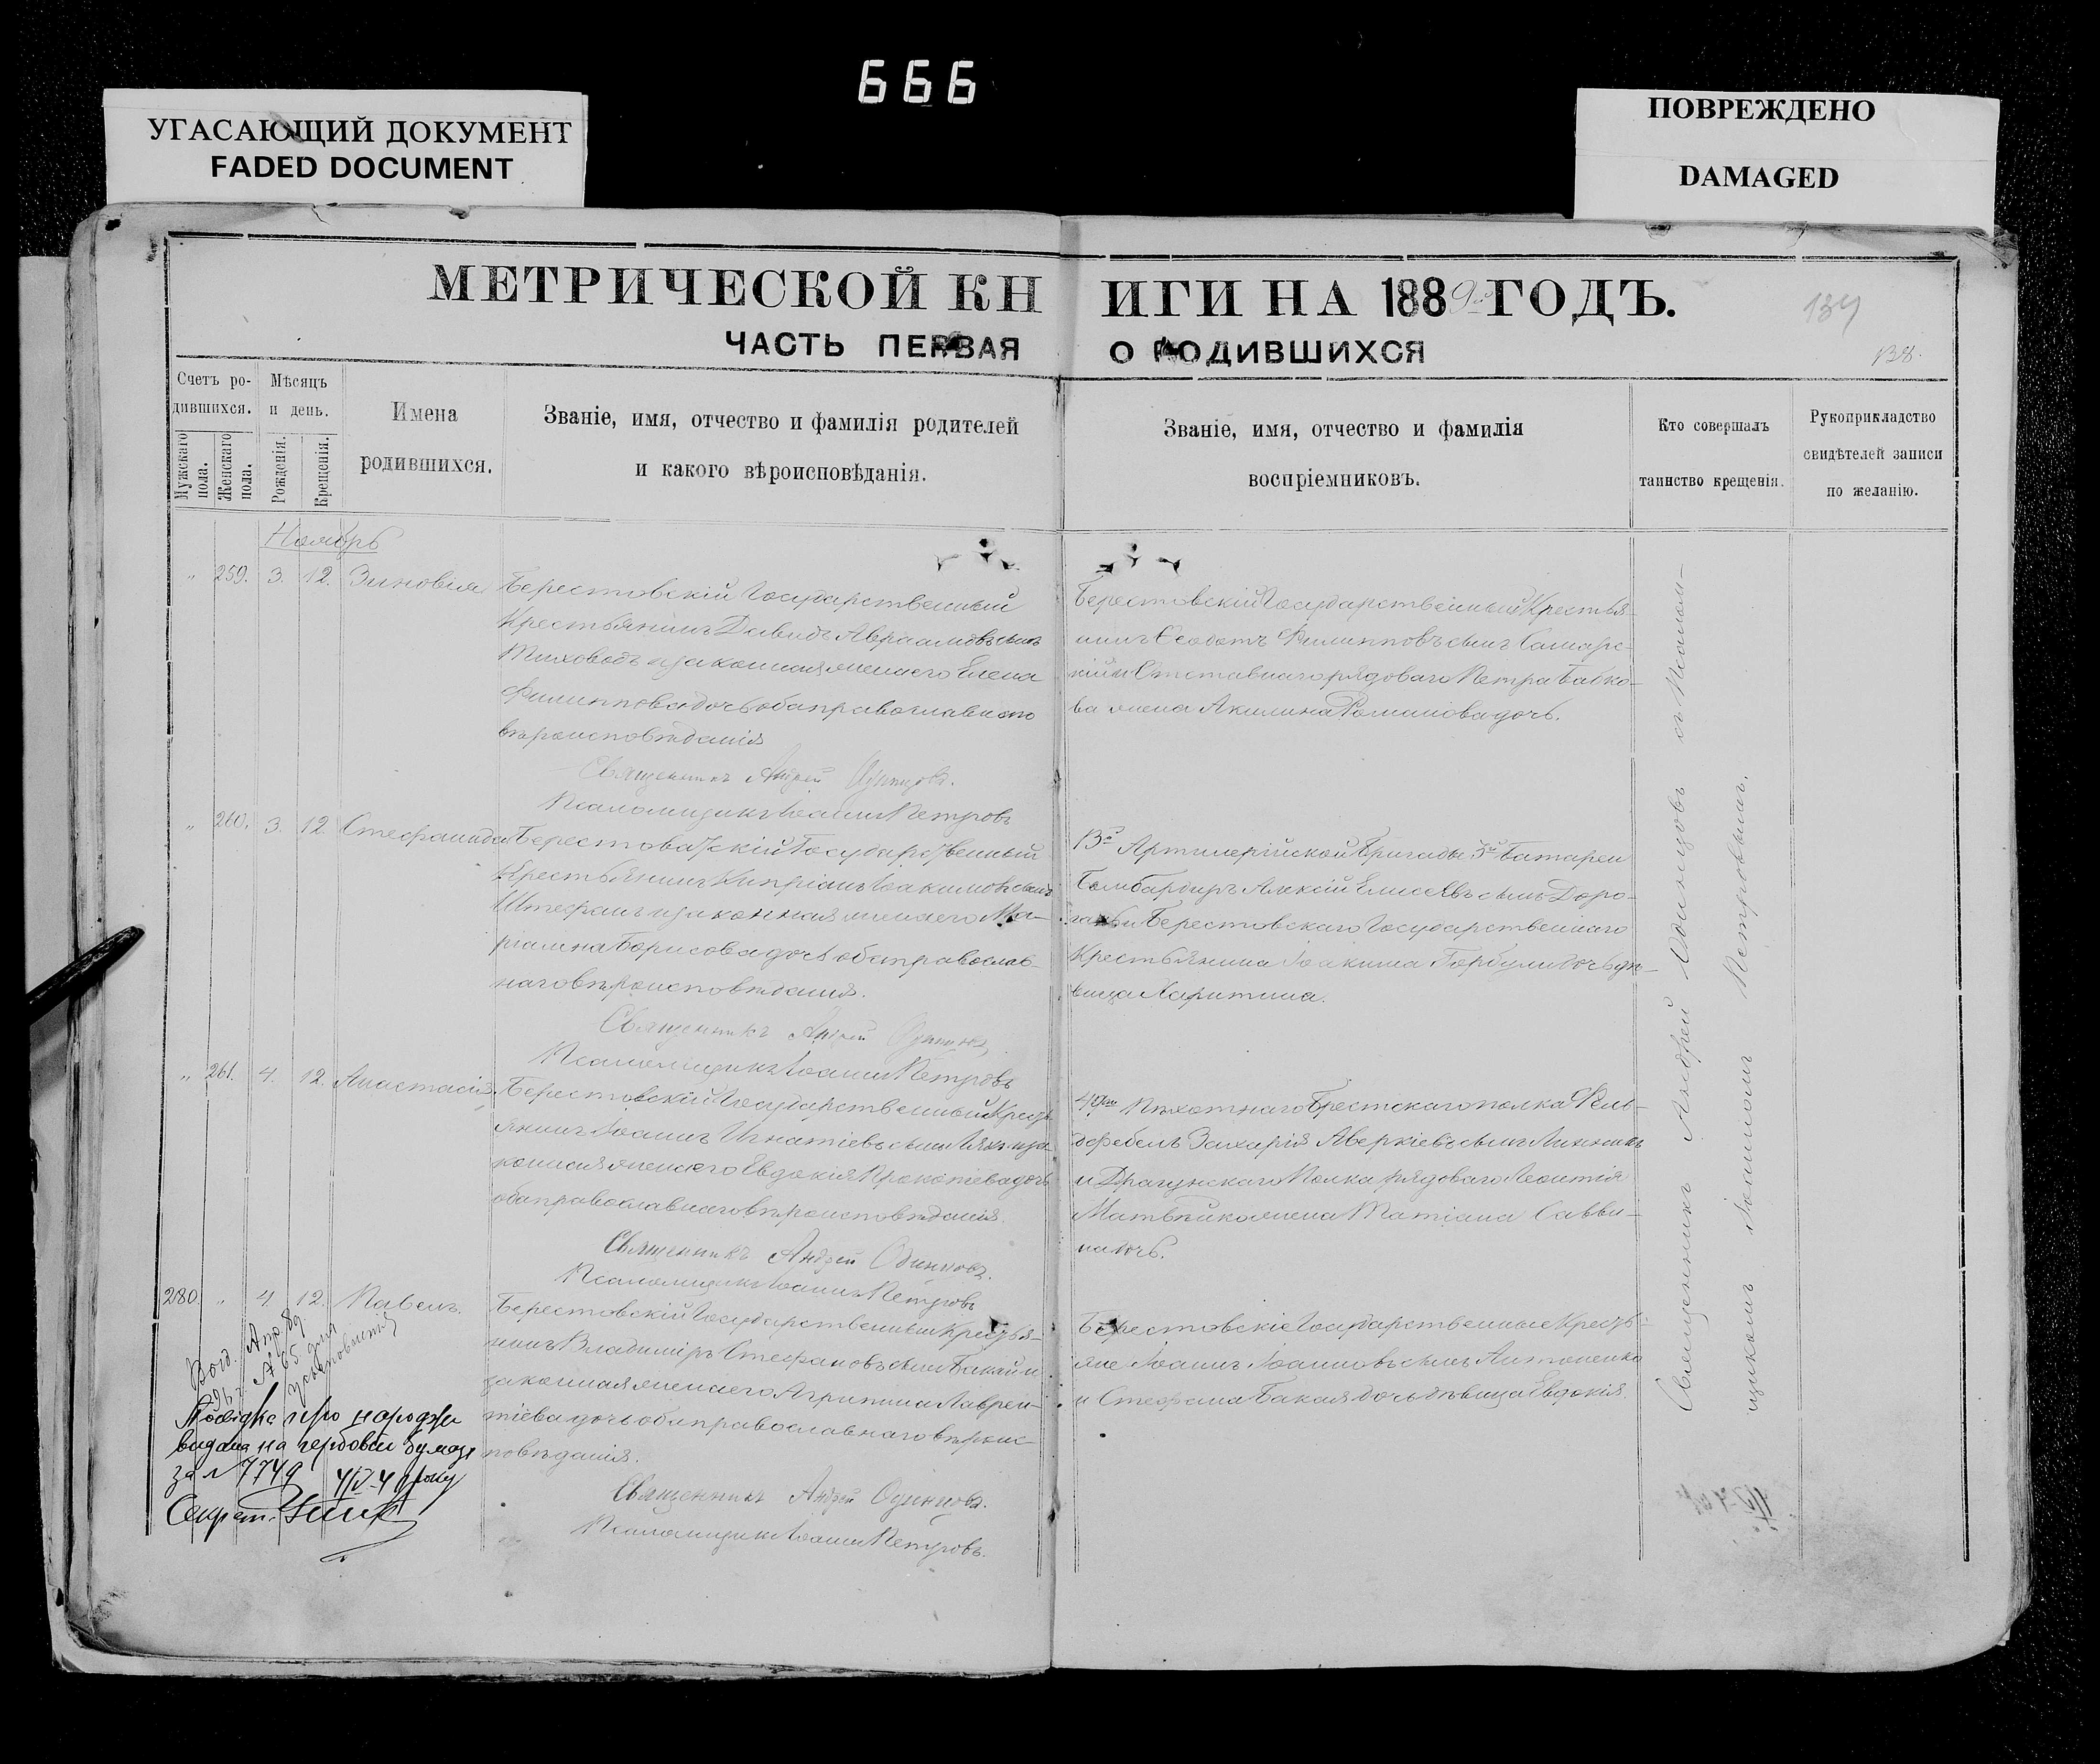 666
УГАСАЮЩИЙ ДОКУМЕНТ
FADED DOCUMENT
ПОВРЕЖДЕНО
DAMAGED
МЕТРИЧЕСКОЙ КНИГИ НА 1889 ГОДЪ.
ЧАСТЬ ПЕРВАЯ О РОДИВШИХСЯ
138.
Счетъ ро-
дившихся.
Мужскаго пола.
Женскаго пола.
Мѣсяцъ
и день.
Рожденія.
Крещенія.
Имена
родившихся.
Званіе, имя, отчество и фамилія родителей
и какого вѣроисповѣданія.
Званіе, имя, отчество и фамилія
воспріемниковъ.
Кто совершалъ
таинство крещенія.
Рукоприкладство
свидѣтелей записи
по желанію.
Ноябрь
" 259. 3. 12. Зиновія
Берестовскій Государственный
Крестьянинъ Давидъ Авраамовъ сынъ
и законная жена его Елена
Филиппова дочь оба православнаго
вѣроисповѣданія
Священникъ Андрей Одинцовъ.
Псаломщикъ Іоаннъ Петровъ
Берестовскій Государственный Крестья-
нинъ Ѳеодотъ Филипповъ сынъ Самарс-
кій и Отставнаго рядоваго Петра Бабко-
ва жена Акилина Романова дочь.
" 260. 3. 12. Стефанида
Государственный
Крестьянинъ Кипріанъ Іоакимовъ сынъ
Штефанъ и законная жена его Ма-
ріанна Борисова дочь оба православ-
наго вѣроисповѣданія.
Священникъ Андрей Одинцовъ
Псаломщикъ Іоаннъ Петровъ
Артилерійской Бригады 3й Батареи
Бомбардиръ Алексій Елисѣевъ сынъ Доро-
и Берестовскаго Государственнаго
Крестьянина Іоакима Горбули дочь дѣ-
вица Харитина.
" 261. 4. 12. Анастасія.
Берестовскій Государственный Кресть-
янинъ Іоаннъ Игнатіевъ сынъ и за-
конная жена его Евдокія Прокопіева дочь
оба православнаго вѣроисповѣданія.
Священникъ Андрей Одинцовъ.
Псаломщикъ Іоаннъ Петровъ
49го Пѣхотнаго Брестскаго полка Фель-
дфебель Захарія Аверкіевъ сынъ
и Драгунскаго Полка рядоваго Леонтія
жена Татіана Савви-
на дочь.
280. " 4. 12. Павелъ.
Берестовскій Государственный Крестья-
нинъ Владиміръ Стефановъ сынъ Бакай и
законная жена его Агрипина Лаврен-
тіева дочь оба православнаго вѣроис-
повѣданія.
Священникъ Андрей Одинцовъ.
Псаломщикъ Іоаннъ Петровъ.
Берестовскіе Государственные Кресть-
яне Іоаннъ Іоанновъ сынъ Антоненко
и Стефана Бакая дочь дѣвица Евдокія.
про народж
видана на гербовім
за № 7749
Секрет.
Священникъ Андрей Одинцовъ съ Псалом-
щикомъ Іоанномъ Петровымъ.